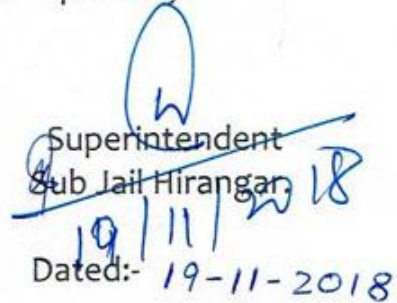 Superintendent
Sub Jail Hirangar.
19/11/2018
Dated:- 19-11-2018